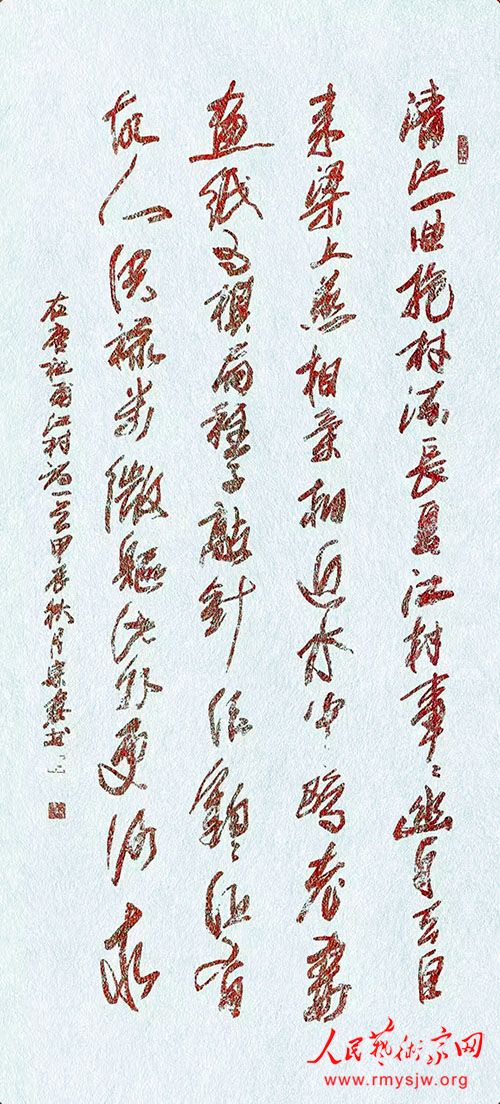 清江一曲抱村流長夏江村事〻幽自去自
来梁上燕相亲相近水中鷗老妻
畫紙为棋局稚子敲針作但有
故人供禄米微躯此外更何求
右唐杜甫江村詩一首甲辰秋月書
人民藝術家网
www.rmysjw.org